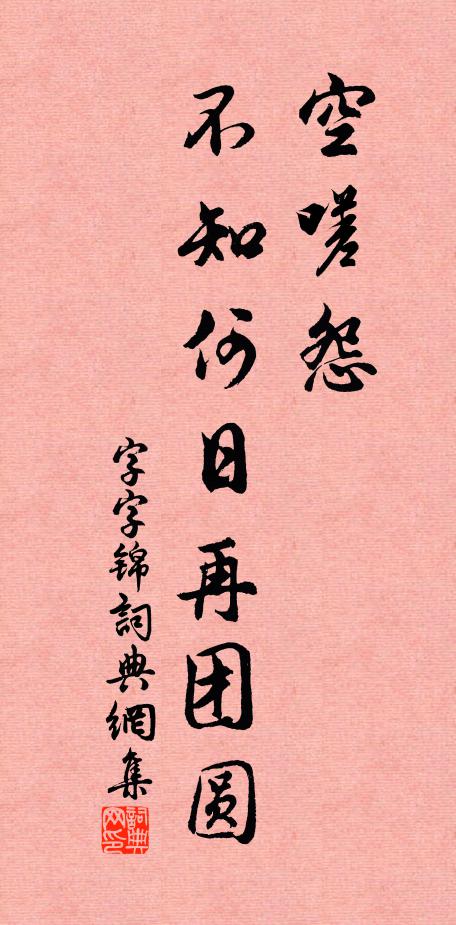 空嗟怨
不知何日再团圆
字字锦詞典網集
詞典网印